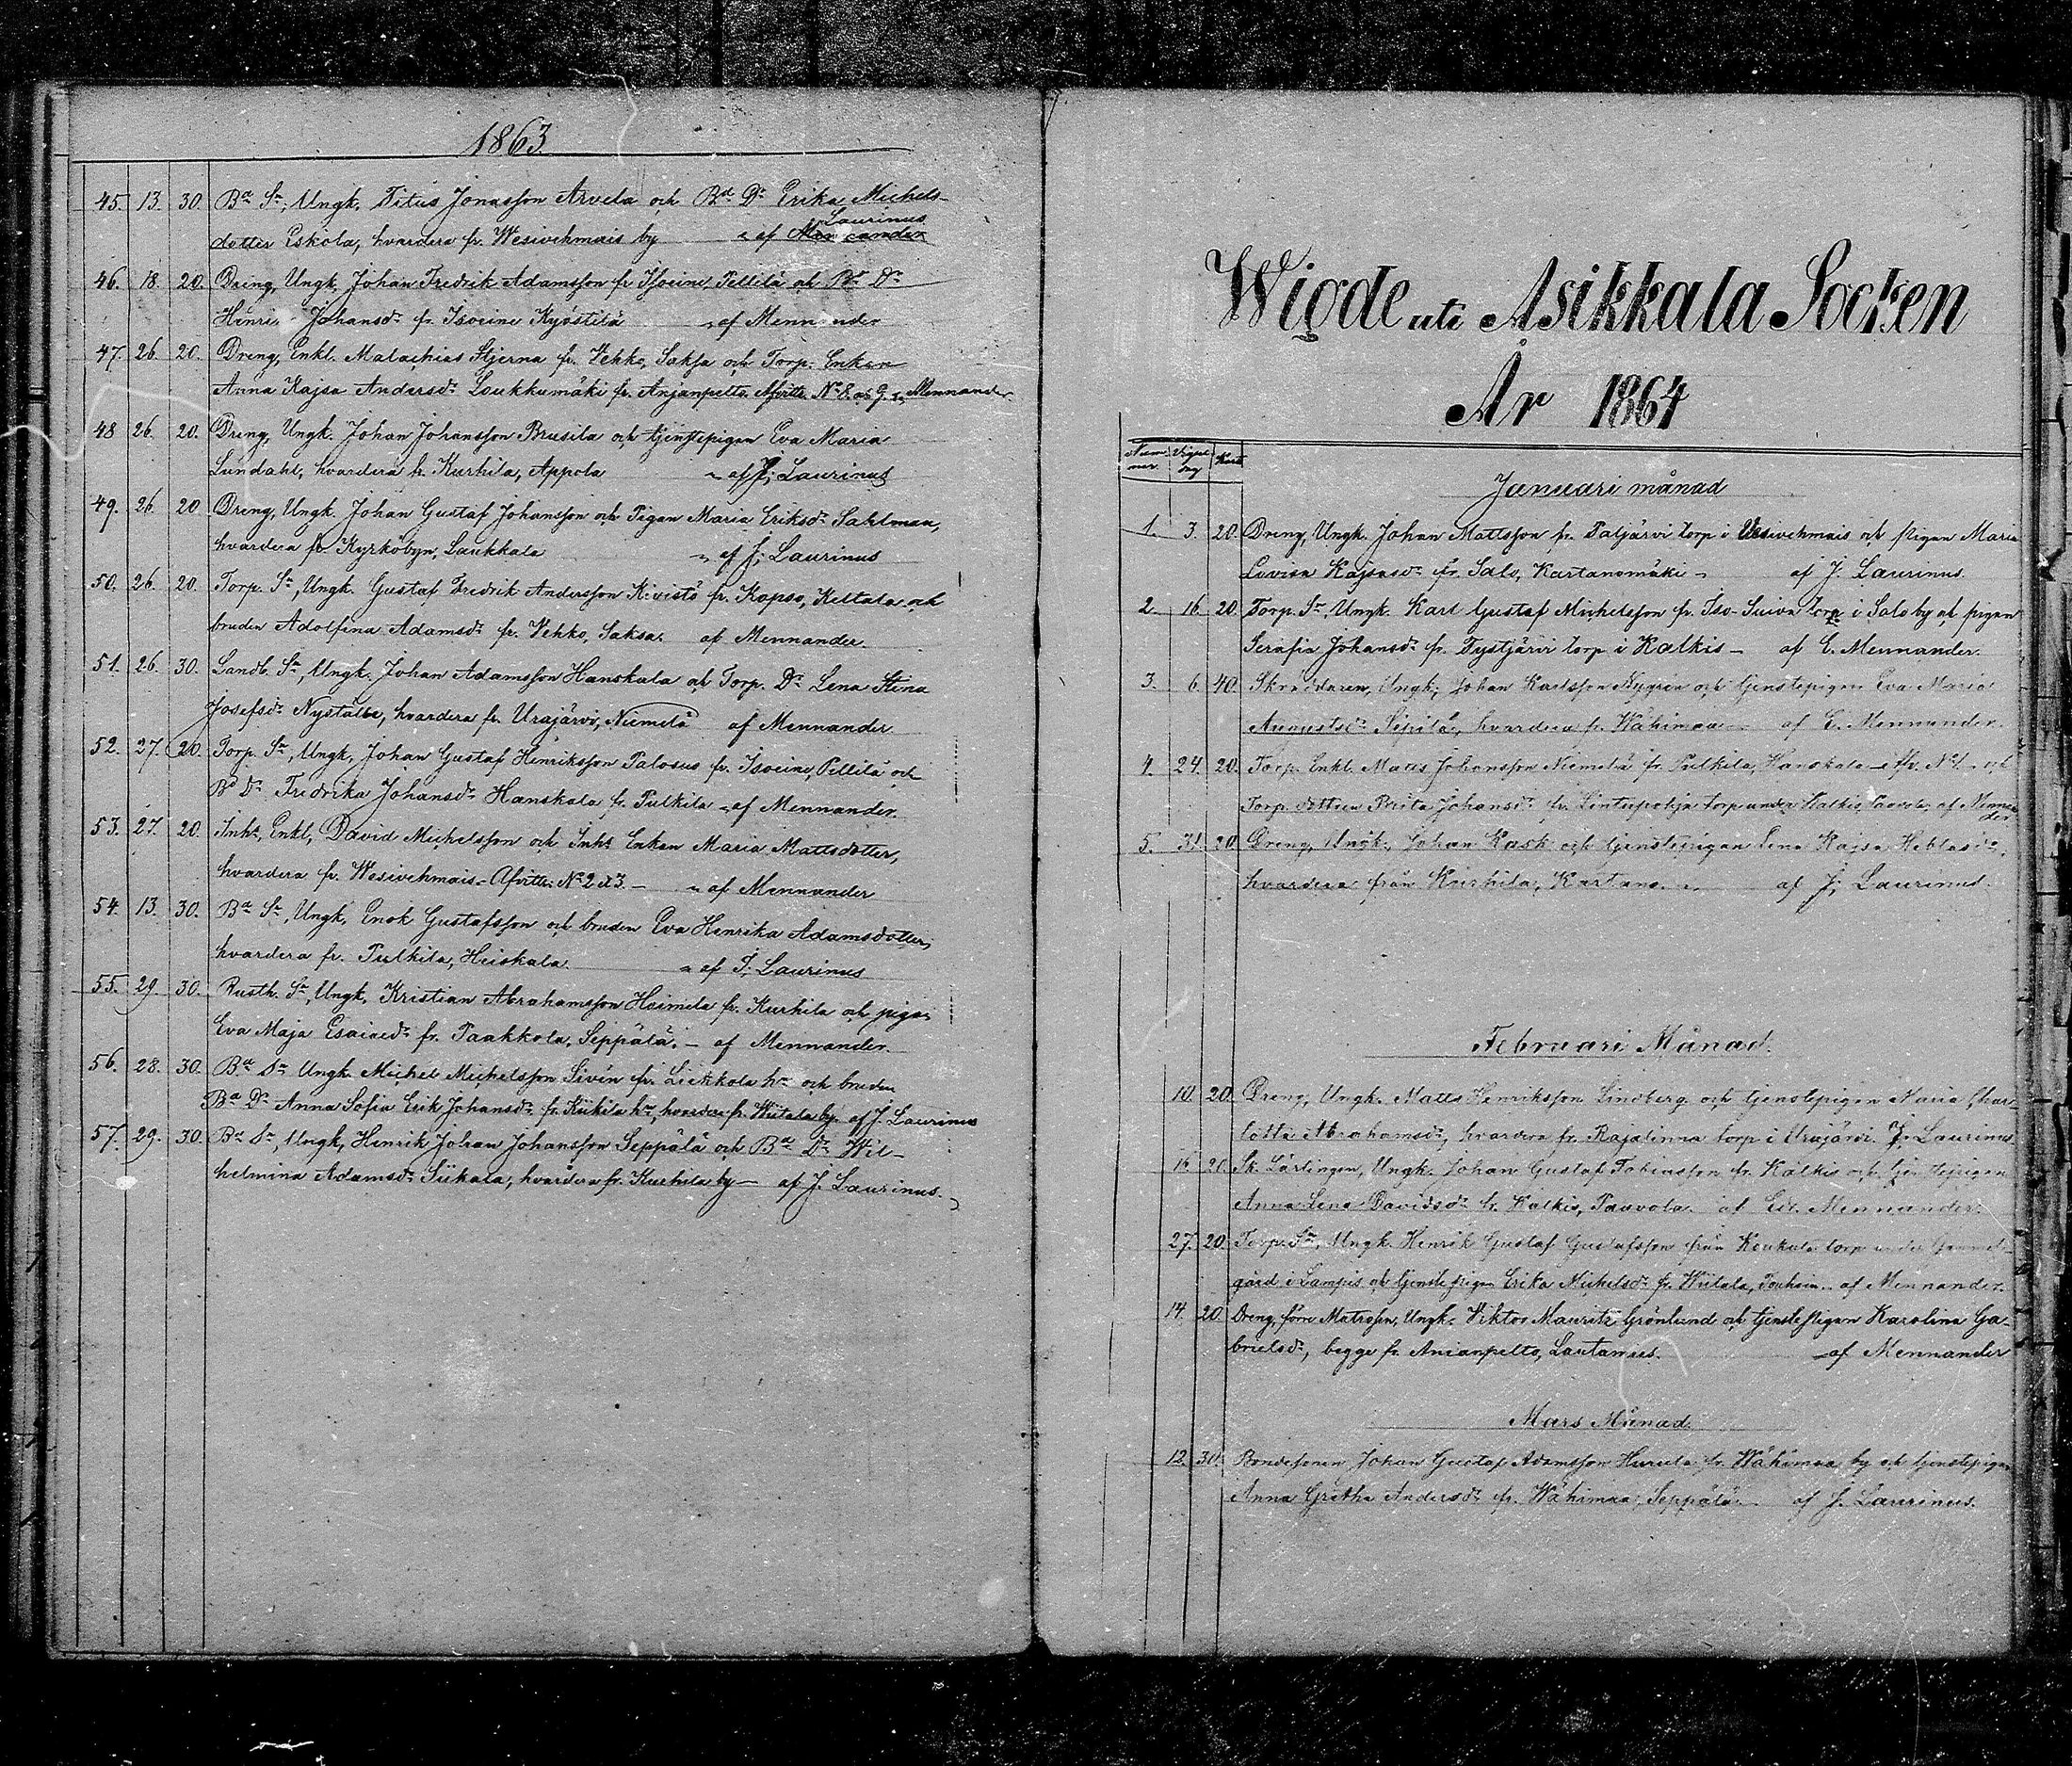 1863.
45. 13. 30. Bd. Sn, Ungk. Titus Jonasson Arvela och Bd. Dr Erika Michels-
dotter Eskola, hvardera fr. Wesivehmais by " af Laurinus
46. 18. 20. Dreng, Ungk. Johan Fredrik Adamsson fr Isoeine, Pellilä och Bd. Dr
Johansdr. fr. Isoeine Kyöstilä " af Mennander
47. 26. 20. Dreng, Enkl. Malachias Stjerna fr. Vehko, Saksa och Torp. Enkan
Anna Kajsa Andersdr. Loukkumäki fr. Anjanpelto. Afvittr. No 8. o. 9. Mennander
48 26. 20. Dreng, Ungk. Johan Johansson Brusila och tjenstepigan Eva Maria
Lundahl, hvardera fr. Kurhila, Appola " af J. Laurinus
49. 26. 20 Dreng, Ungk. Johan Gustaf Johansson och Pigan Maria Eriksdr. Sahlman,
hvardera fr. Kyrkobyn, Laukkala " af J. Laurinus
50. 26. 20. Torp. Sn, Ungk. Gustaf Fredrik Andersson Kivistö fr. Kopso, Keltala och
bruden Adolfina Adamsdr. fr. Vehko, Saksa. af Mennander.
51. 26. 30. Landb. Sn, Ungk. Johan Adamsson Hanskala och Torp. Dr Lena Stina
Josefsdr. hvardera fr. Urajärvi, Niemelä af Mennander
52. 27. 20. Torp. Sn, Ungk, Johan Gustaf Henriksson Palosuo fr. Isoeine, Pellilä och
Bd Dr Fredrika Johansdr. Hanskala fr. Pulkila " af Mennander.
53. 27. 20. Inhs, Enkl, David Michelsson och Inhs Enkan Maria Mattsdotter,
hvardera fr. Wesivehmais. Afvittr. No 2 & 3. " af Mennander
54. 13. 30. Bd. Sn, Ungk, Enok Gustafsson och bruden Eva Henrika Adamsdotter,
hvardera fr. Pulkila, Heiskala. " af J. Laurinus
55. 29. 30. Rusth. Sn, Ungk, Kristian Abrahamsson Heimela fr. Kurhila och pigan
Eva Maja Esaiaedr. fr. Paakkola, Seppälä. af Mennander.
56. 28. 30. Bd. Sn Ungk. Michel Michelsson Sivén fr. hn och bruden
Bd. Dr Anna Sofia Erik Johansdr. fr. hn, hvardera fr. Wiitala by. af J. Laurinus
57. 29. 30. Bd. Sn, Ungk, Henrik Johan Johansson Seppälä och Bd. Dr Wil-
helmina Adamsdr. hvardera fr. Kurhila by af J. Laurinus.
Wigde uti Asikkala Socken
År 1864
Num- mer. Vigsel- Karta
Januari månad
1. 3. 20. Dreng, Ungk. Johan Mattsson fr. Paljärvi torp i Vesivehmais och pigan Maria
Lovisa Kajsasdr. fr. Salo, Kartanomäki af J. Laurinus.
2. 16. 20. Torp. Sn, Ungk. Karl Gustaf Michelsson fr. Iso- torp i Salo by och pigan
Serafia Johansdr. fr. Tystjärvi torp i Kalkis af E. Mennander.
3. 6. 40. Skräddaren, Ungk, Johan Karlsson Nygrén och tjenstepigan Eva Maria
Augustsdr. Sipilä, hvardera fr. Wähimaa af E. Mennander.
4. 24. 20. Torp. Enkl. Matts Johansson Niemelä fr. Pulkila, Hanskala Afv. No 1. och
Torp. dottren Brita Johansdr. fr. torp under Kalkis, Paavola, af Mennan-
der
5. 31. 20. Dreng, Ungk., Johan Rask och tjenstepigan Lena Kajsa
hvardera från Kurhila, Kartano. " af J. Laurinus.
Februari Månad.
10. 20. Dreng, Ungk. Matts Henriksson Lindberg och tjenstepigan Maria Char-
lotta Abrahamsdr., hvardera fr. Rajalinna torp i Urajärvi. J. Laurinus
16. 20. Sk. Lärlingen, Ungk. Johan Gustaf Tobiasson fr. Kalkis och tjenstepigan
Anna Lena Davidsdr. fr. Kalkis, Paavola. af Ed. Mennander.
27. 20. Torp. Sn, Ungk. Henrik Gustaf Gustafsson från torp under Gammel-
gård i Lampis och tjenstepigan Erika Michelsdr. fr. Wiitala, af Mennander.
14. 20. Dreng, förre Matrosen, Ungk. Viktor Mauritz Grönlund och tjenstepigan Karolina Ga-
brielsdr, begge fr. Anianpelto, af Mennander
Mars Månad.
12. 30. Bondesonen Johan Gustaf Adamsson fr. Wähimaa by och tjenstepigan
Anna Gretha Andersdr. fr. Wähimaa, Seppälä. af J. Laurinus.